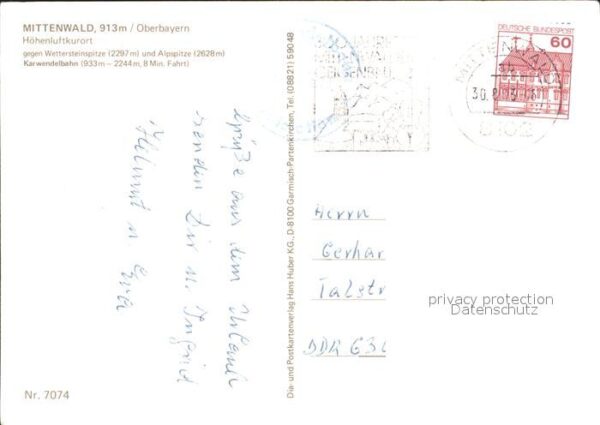 MITTENWALD, 913m / Oberbayern
Höhenluftkurort
gegen Wettersteinspitze (2297m) und Alpspitze (2628m)
Karwendelbahn (933m – 2244m, 8 Min. Fahrt)
Grüße aus dem Urlaub
senden Dir u. Ingrid
Helmut u. Eva
Nr. 7074
Dia- und Postkartenverlag Hans Huber KG., D-8100 Garmisch-Partenkirchen, Tel. (08821) 59048
DEUTSCHE BUNDESPOST
60
MITTENWALD
8102
Herrn
Gerhar
Talstr
DDR 630
privacy protection
Datenschutz